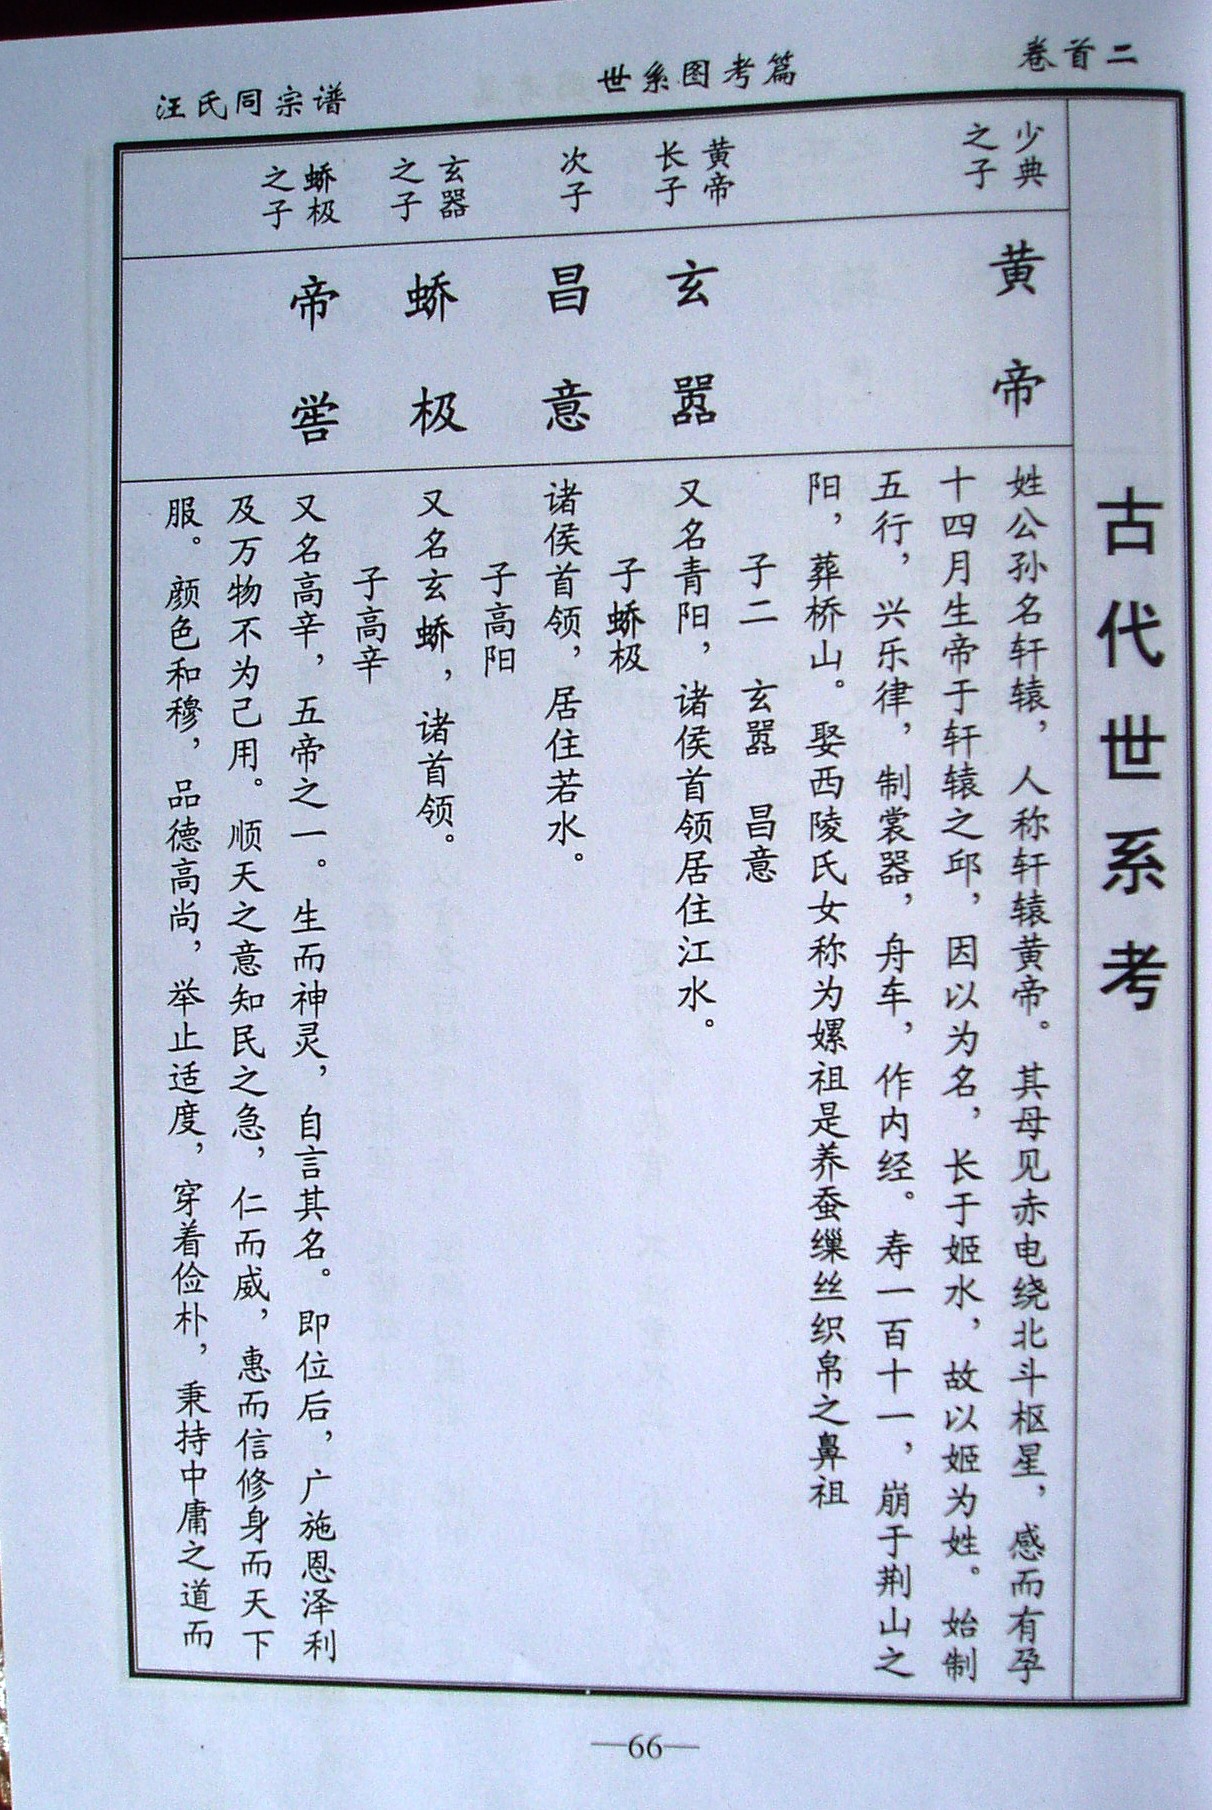 卷首二
世系图考篇
汪氏同宗谱
古代世系考
少典
之子
黄帝
姓公孙名轩辕，人称轩辕黄帝。其母见赤电绕北斗枢星，感而有孕
十四月生帝于轩辕之邱，因以为名，长于姬水，故以姬为姓。始制
五行，兴乐律，制裳器，舟车，作内经。寿一百十一，崩于荆山之
阳，葬桥山。娶西陵氏女称为嫘祖是养蚕缫丝织帛之鼻祖
子二 玄嚣 昌意
黄帝
长子
玄嚣
又名青阳，诸侯首领居住江水。
子蟜极
次子
昌意
诸侯首领，居住若水。
子高阳
玄器
之子
蟜极
又名玄蟜，诸首领。
子高辛
蟜极
之子
帝喾
又名高辛，五帝之一。生而神灵，自言其名。即位后，广施恩泽利
及万物不为己用。顺天之意知民之急，仁而威，惠而信修身而天下
服。颜色和穆，品德高尚，举止适度，穿着俭朴，秉持中庸之道而
—66—